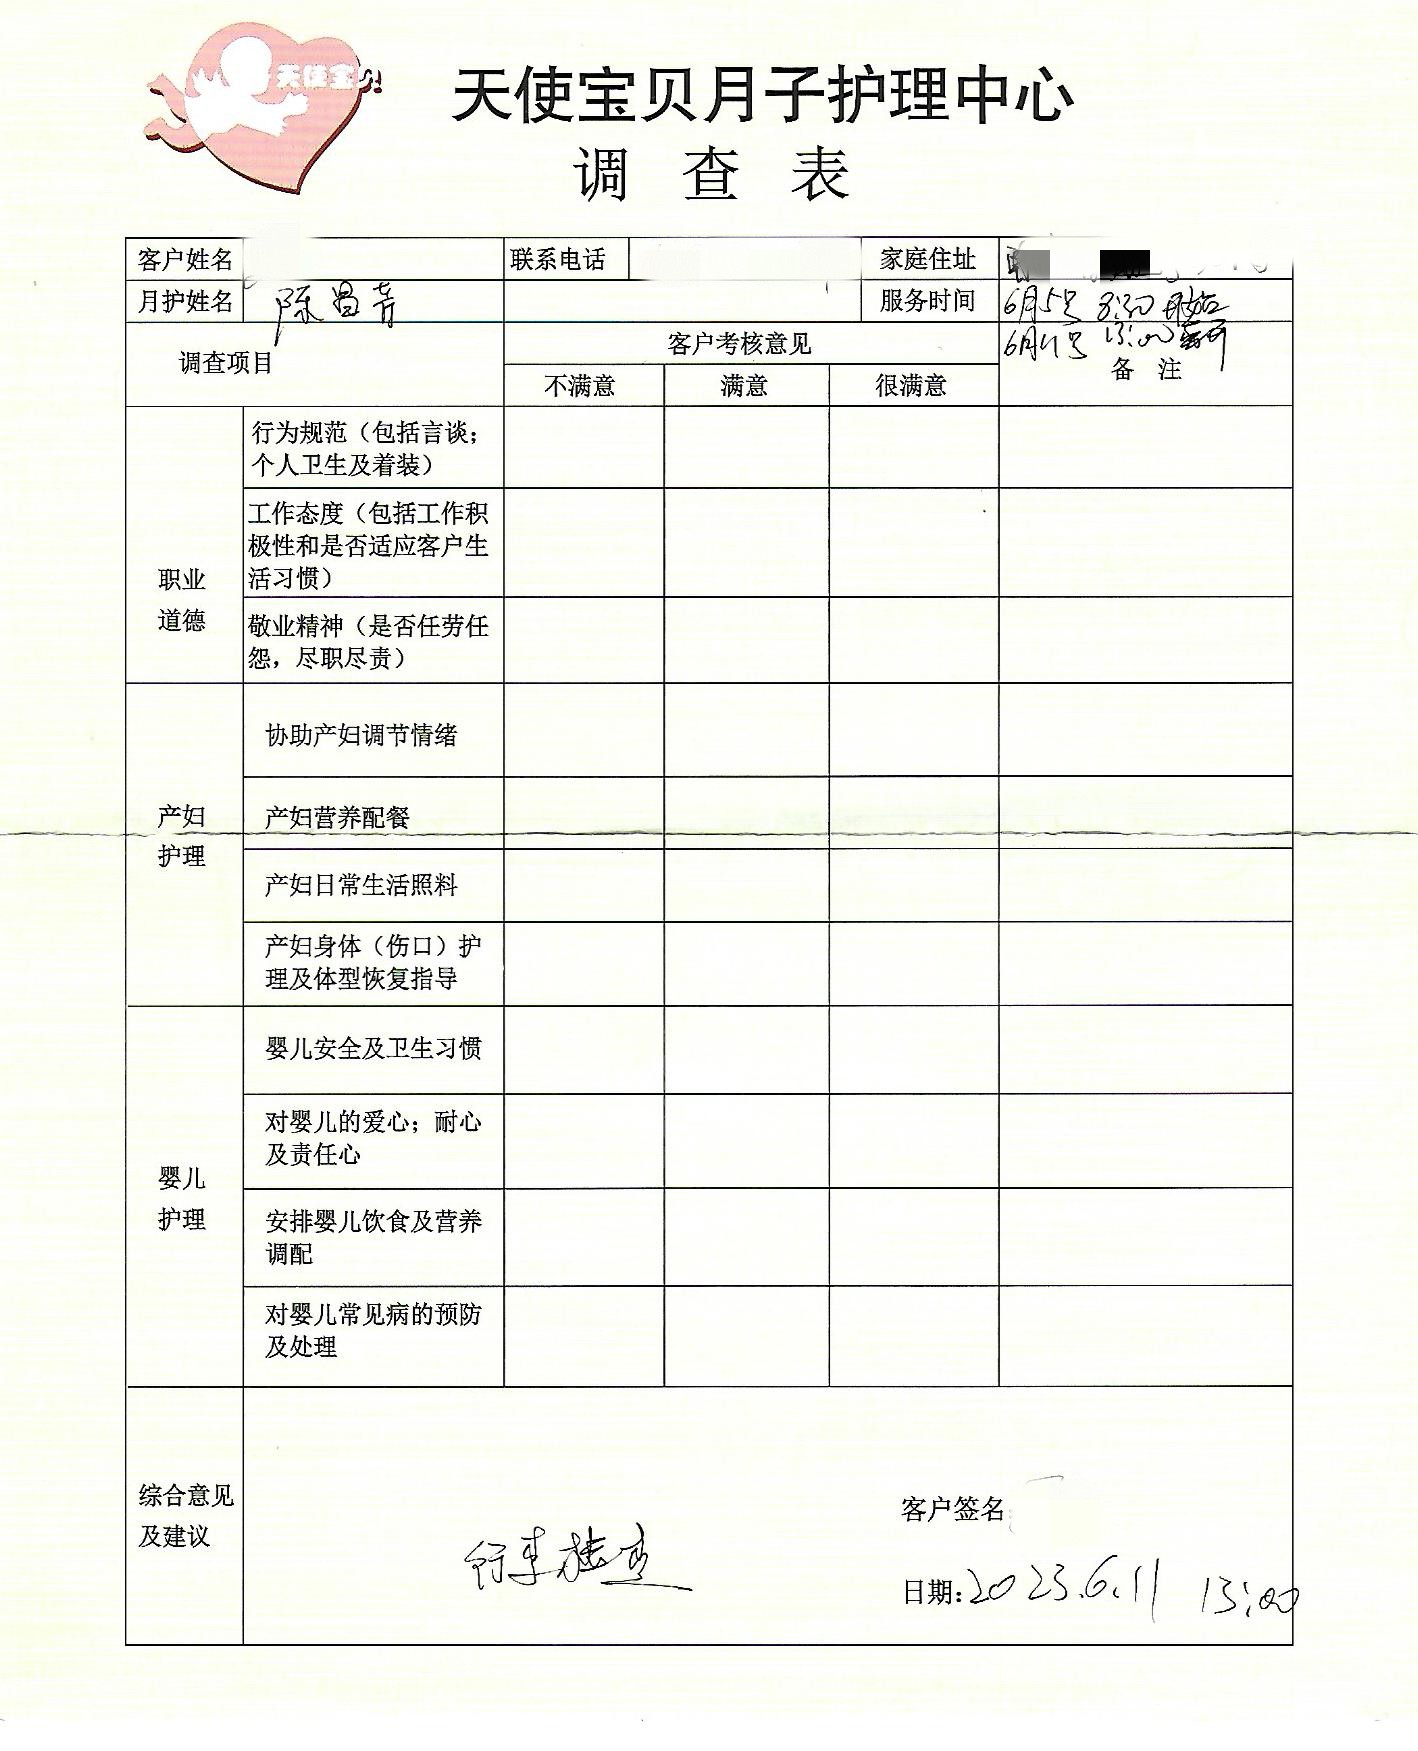 天使宝贝
天使宝贝月子护理中心
调 查 表
客户姓名 联系电话 家庭住址
月护姓名 陈昌芳 服务时间 6月5号 8:30
6月11号 13:00
调查项目 客户考核意见 备 注
不满意 满意 很满意
职业
道德
行为规范（包括言谈；
个人卫生及着装）
工作态度（包括工作积
极性和是否适应客户生
活习惯）
敬业精神（是否任劳任
怨，尽职尽责）
产妇
护理
协助产妇调节情绪
产妇营养配餐
产妇日常生活照料
产妇身体（伤口）护
理及体型恢复指导
婴儿
护理
婴儿安全及卫生习惯
对婴儿的爱心；耐心
及责任心
安排婴儿饮食及营养
调配
对婴儿常见病的预防
及处理
综合意见
及建议
客户签名
日期:2023.6.11 13:00